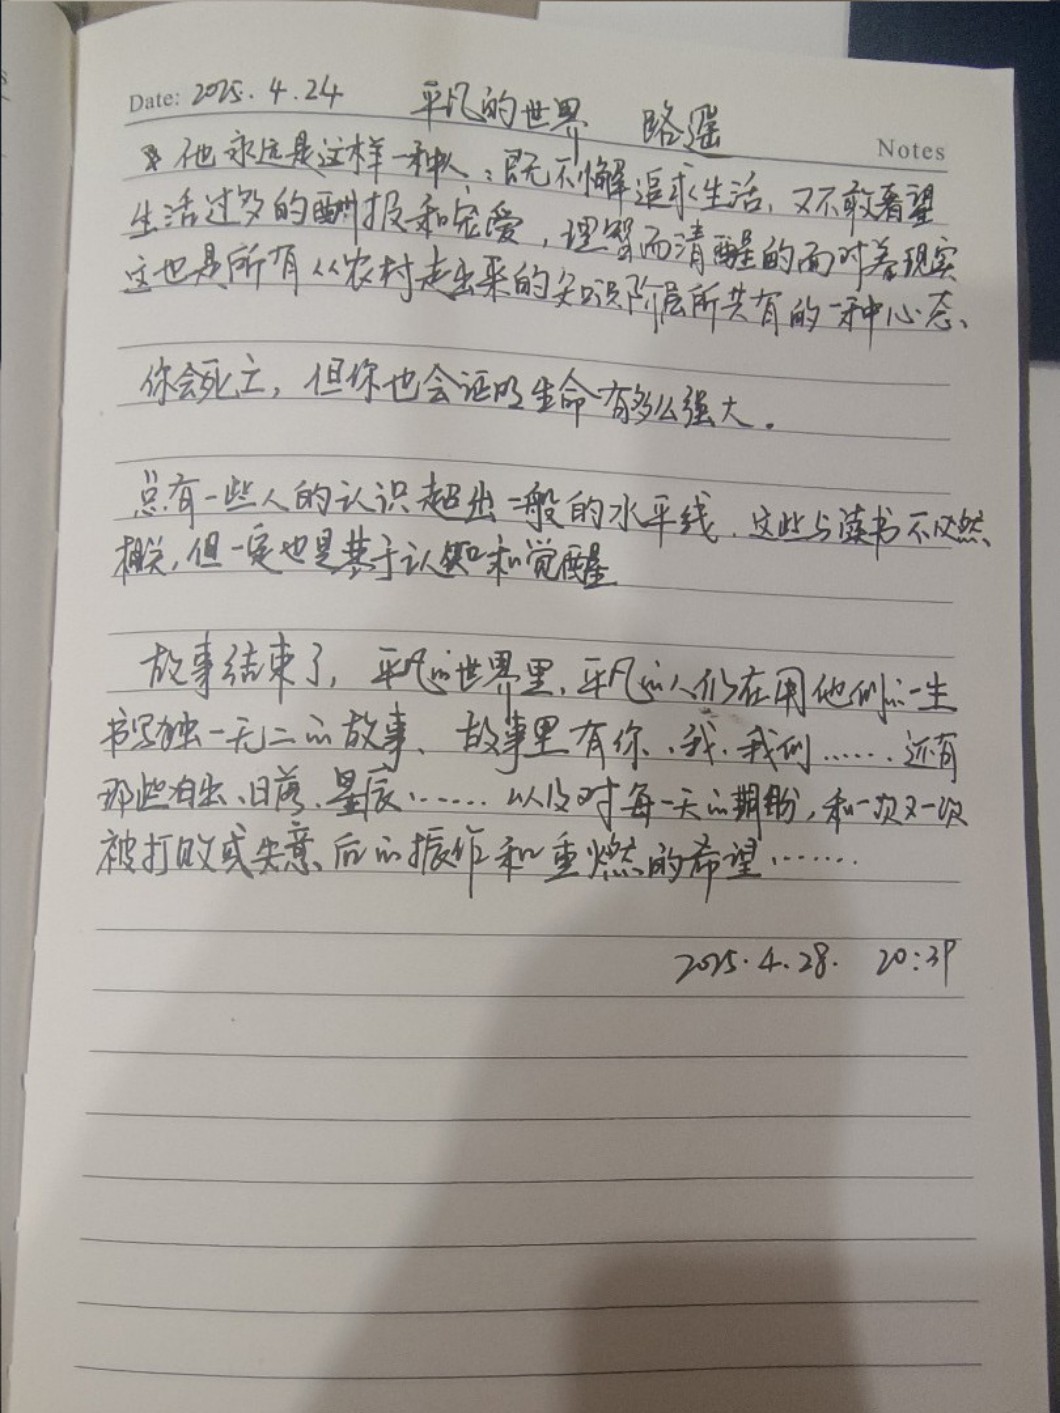 Date: 2025.4.24 平凡的世界 路遥
Notes
他永远是这样一种人：既不懈追求生活，又不敢奢望
生活过多的酬报和宠爱，理智而清醒的面对着现实
这也是所有从农村走出来的知识阶层所共有的一种心态、
你会死亡，但你也会证明生命有多么强大。
总有一些人的认识超出一般的水平线、这些与读书不必然
相关，但一定也是基于认知和觉醒
故事结束了，平凡的世界里，平凡的人们在用他们的一生
书写独一无二的故事、故事里有你、我、我们……、还有
那些日出、日落、星辰……、以及对每一天的期盼，和一次又一次
被打败或失意后的振作和重燃的希望……
2025.4.28. 20:39